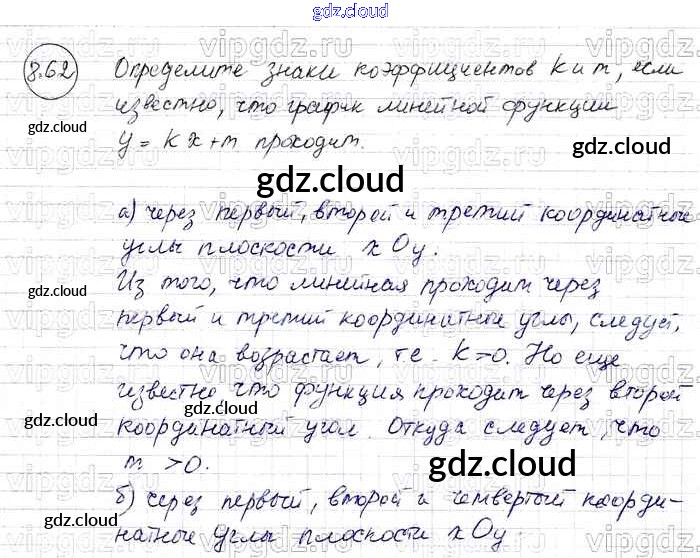 gdz.cloud
8.62 Определите знаки коэффициентов k и m, если
известно, что график линейной функции
gdz.cloud
y = kx+m проходит.
gdz.cloud
gdz.cloud
а) через первый, второй и третий координатные
углы плоскости xOy.
Из того, что линейная проходит через
gdz.cloud
первый и третий координатные углы, следует,
что она возрастает, т.е. k>0. Но еще
известно что функция проходит через второй
gdz.cloud
gdz.cloud
координатный угол. Откуда следует, что
m >0.
gdz.cloud
б) через первый, второй и четвертый коорди-
натные углы плоскости xOy.
gdz.cloud
gdz.cloud